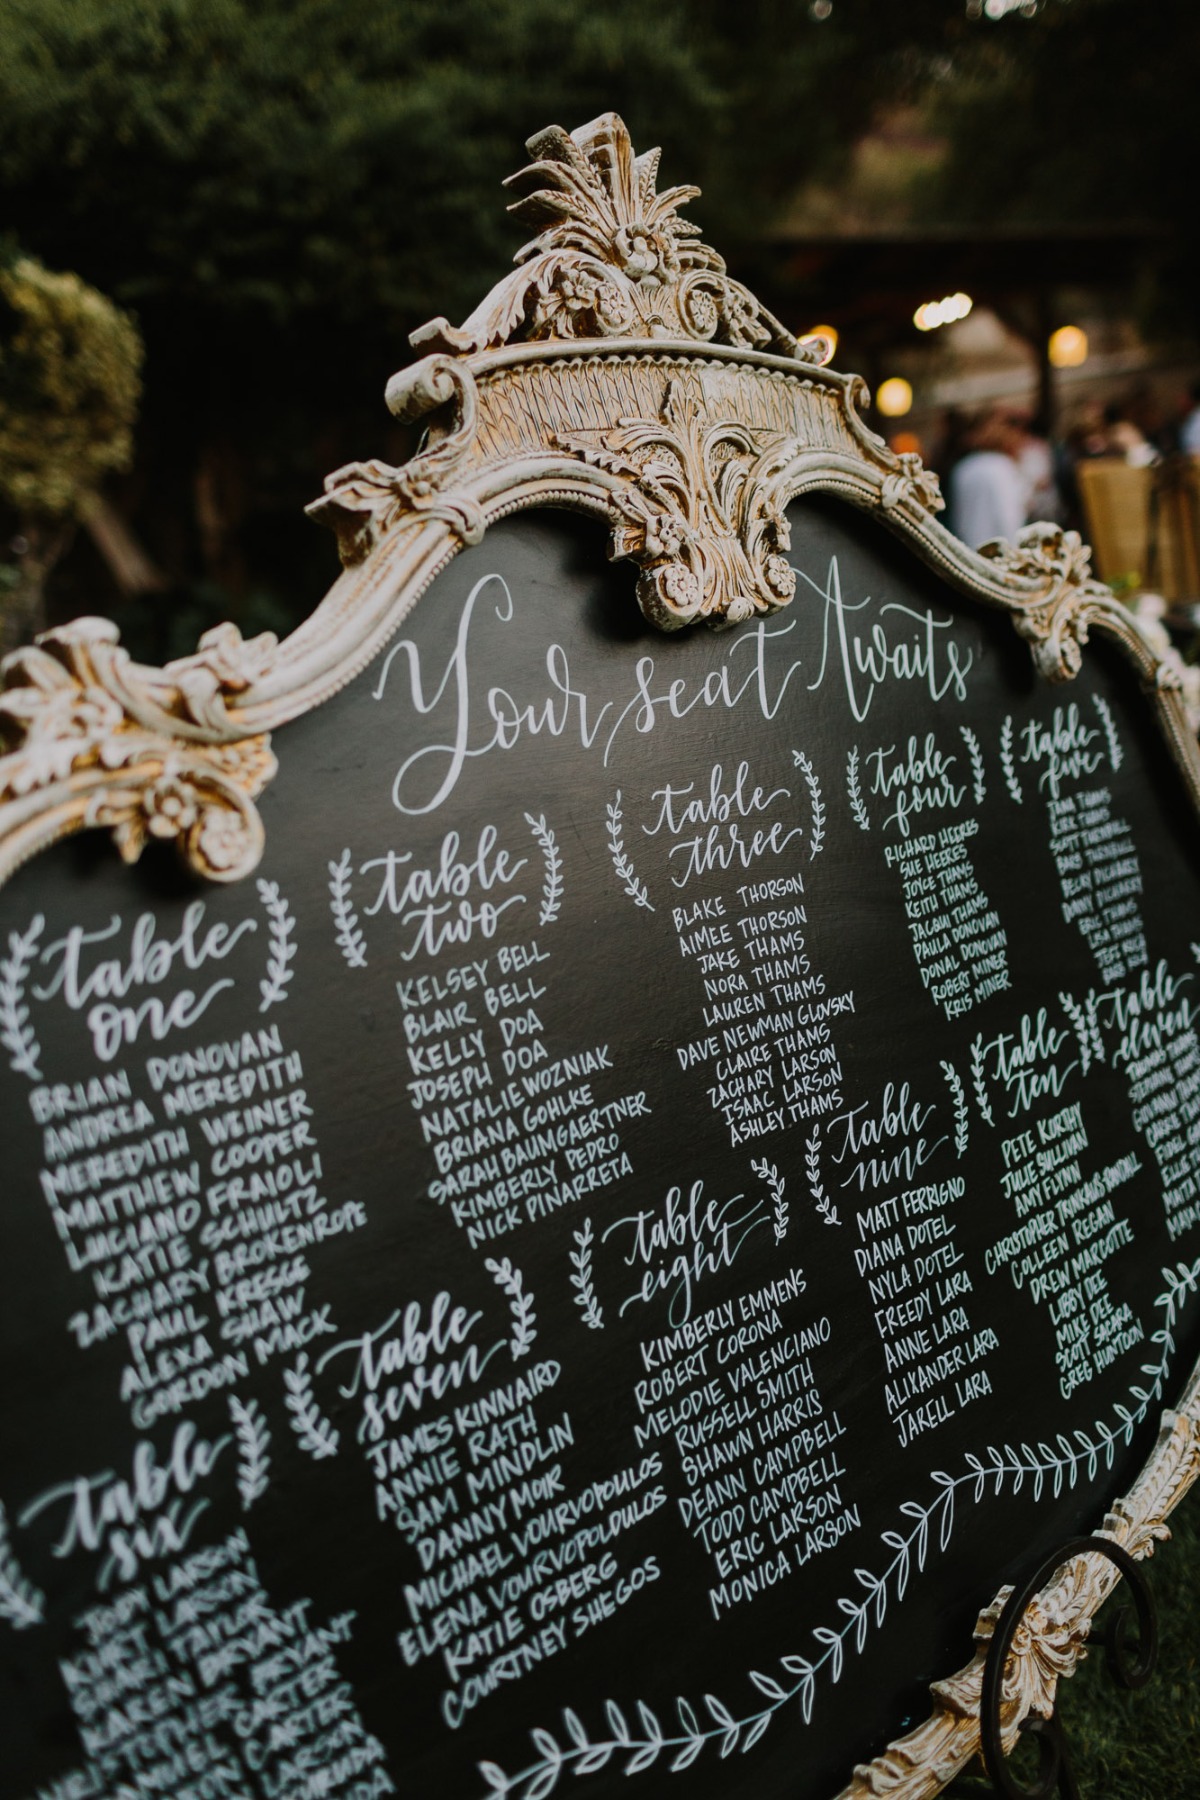 Your seat Awaits
table
one
BRIAN DONOVAN
ANDREA MEREDITH
MEREDITH WEINER
MATTHEW COOPER
LUCIANO FRAIOLI
KATIE SCHULTZ
ZACHARY BROKENROPE
PAUL KRESGE
ALEXA SHAW
GORDON MACK
table
two
KELSEY BELL
BLAIR BELL
KELLY DOA
JOSEPH DOA
NATALIE WOZNIAK
BRIANA GOHLKE
SARAH BAUMGAERTNER
KIMBERLY PEDRO
NICK PINARRETA
table
three
BLAKE THORSON
AIMEE THORSON
JAKE THAMS
NORA THAMS
LAUREN THAMS
DAVE NEWMAN GLOVSKY
CLAIRE THAMS
ZACHARY LARSON
ISAAC LARSON
ASHLEY THAMS
table
four
RICHARD HEERES
SUE HEERES
JOYCE THAMS
KEITH THAMS
JACQUI THAMS
PAULA DONOVAN
DONAL DONOVAN
ROBERT MINER
KRIS MINER
table
five
THAMS
KIRK THAMS
SCOTT TURNBULL
BARB TURNBULL
BECKY PICHARDY
DANNY PICHARDY
ERIC THAMS
LISA THAMS
JEFF RICE
BARB RICE
table
six
LARSON
LARSON
TAYLOR
KAREN BRYANT
BRYANT
CARTER
CARTER
LARSON
table
seven
JAMES KINNAIRD
ANNIE RATH
SAM MINDLIN
DANNY MOR
MICHAEL VOURVOPOULOS
ELENA VOURVOPOLDULOS
KATIE OSBERG
COURTNEY SHEGOS
table
eight
KIMBERLY EMMENS
ROBERT CORONA
MELODIE VALENCIANO
RUSSELL SMITH
SHAWN HARRIS
DEANN CAMPBELL
TODD CAMPBELL
ERIC LARSON
MONICA LARSON
table
nine
MATT FERRIGNO
DIANA DOTEL
NYLA DOTEL
FREEDY LARA
ANNE LARA
ALIXANDER LARA
JARELL LARA
table
ten
PETE KORTHY
JULIE SULLIVAN
AMY FLYNN
CHRISTOPHER TRINKHAUS-RANDALL
COLLEEN REGAN
DREW MARGOTTE
LIBBY DEE
MIKE DEE
SCOTT SAPARA
GREG HUNTOON
table
eleven